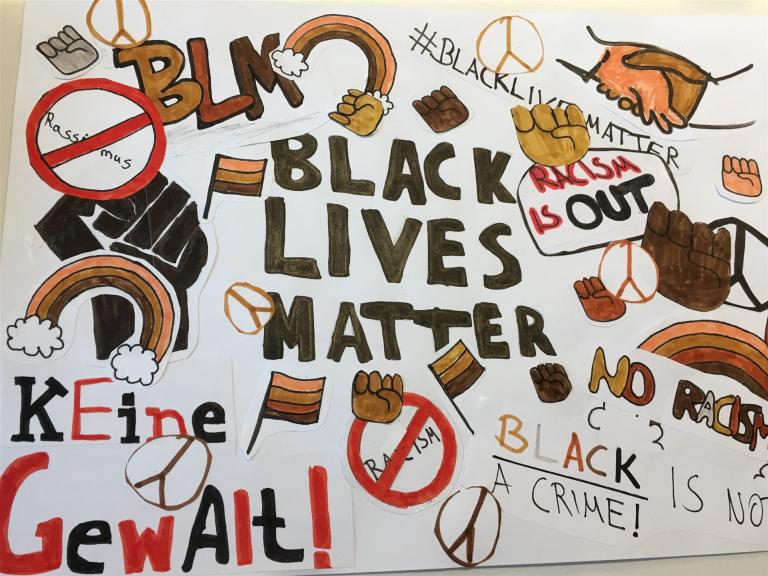 BLM
#BLACKLIVESMATTER
Rassismus
BLACK
LIVES
MATTER
RACISM
IS OUT
KEine
GewAlt!
RACISM
NO RACISM
BLACK IS NO
A CRIME!